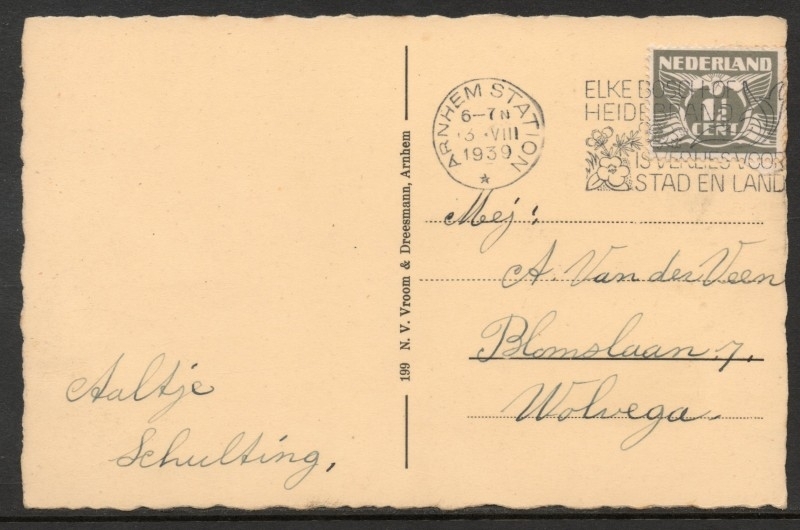 NEDERLAND
1½
CENT
ARNHEM STATION
6-7N
3 VIII
1939
ELKE
HEIDE
IS VERLIES VOOR
STAD EN LAND
Mej:
A. Van der Veen
Blomslaan 7,
Wolvega
199 N. V. Vroom & Dreesmann, Arnhem
Aaltje
Schulting,